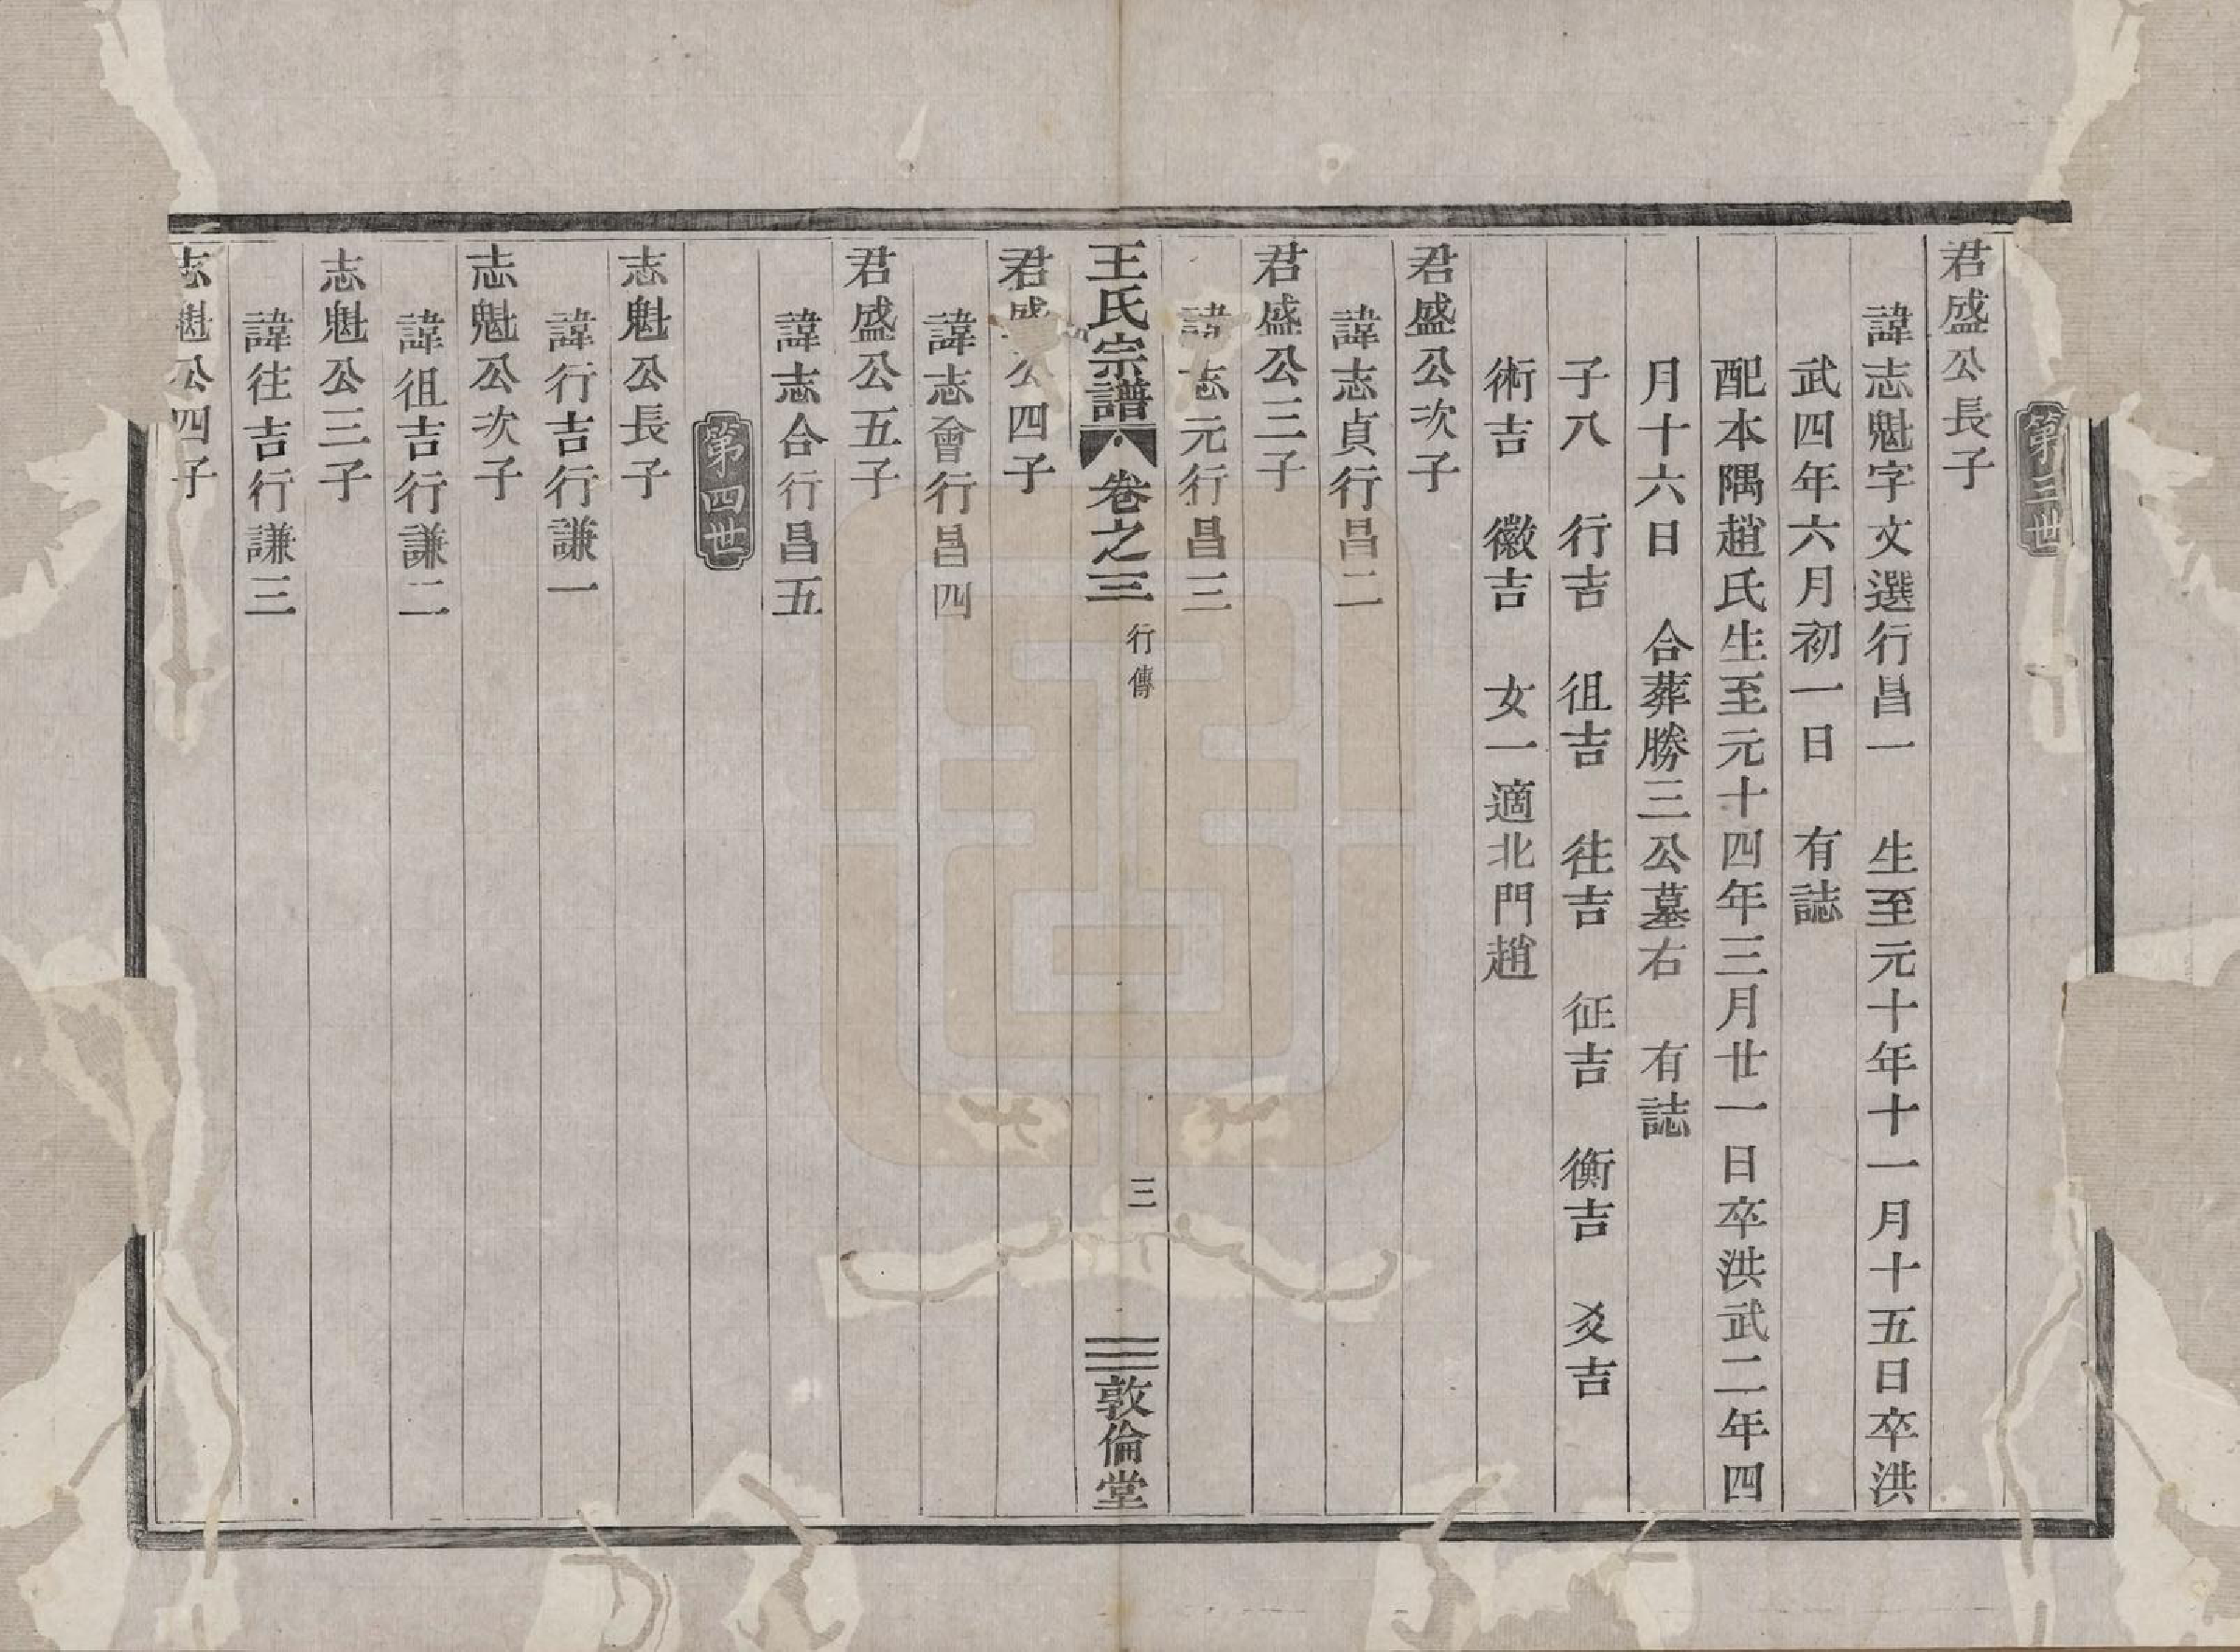 第三世
君盛公長子
諱志魁字文選行昌一　生至元十年十一月十五日卒洪
武四年六月初一日　有誌
配本隅趙氏生至元十四年三月廿一日卒洪武二年四
月十六日　合葬勝三公墓右　有誌
子八　行吉　徂吉　往吉　征吉　衡吉　㸚吉
術吉　徽吉　女一適北門趙
君盛公次子
諱志貞行昌二
君盛公三子
諱志元行昌三
王氏宗譜　卷之三　行傳　三　敦倫堂
君盛公四子
諱志會行昌四
君盛公五子
諱志合行昌五
第四世
志魁公長子
諱行吉行謙一
志魁公次子
諱徂吉行謙二
志魁公三子
諱往吉行謙三
志魁公四子